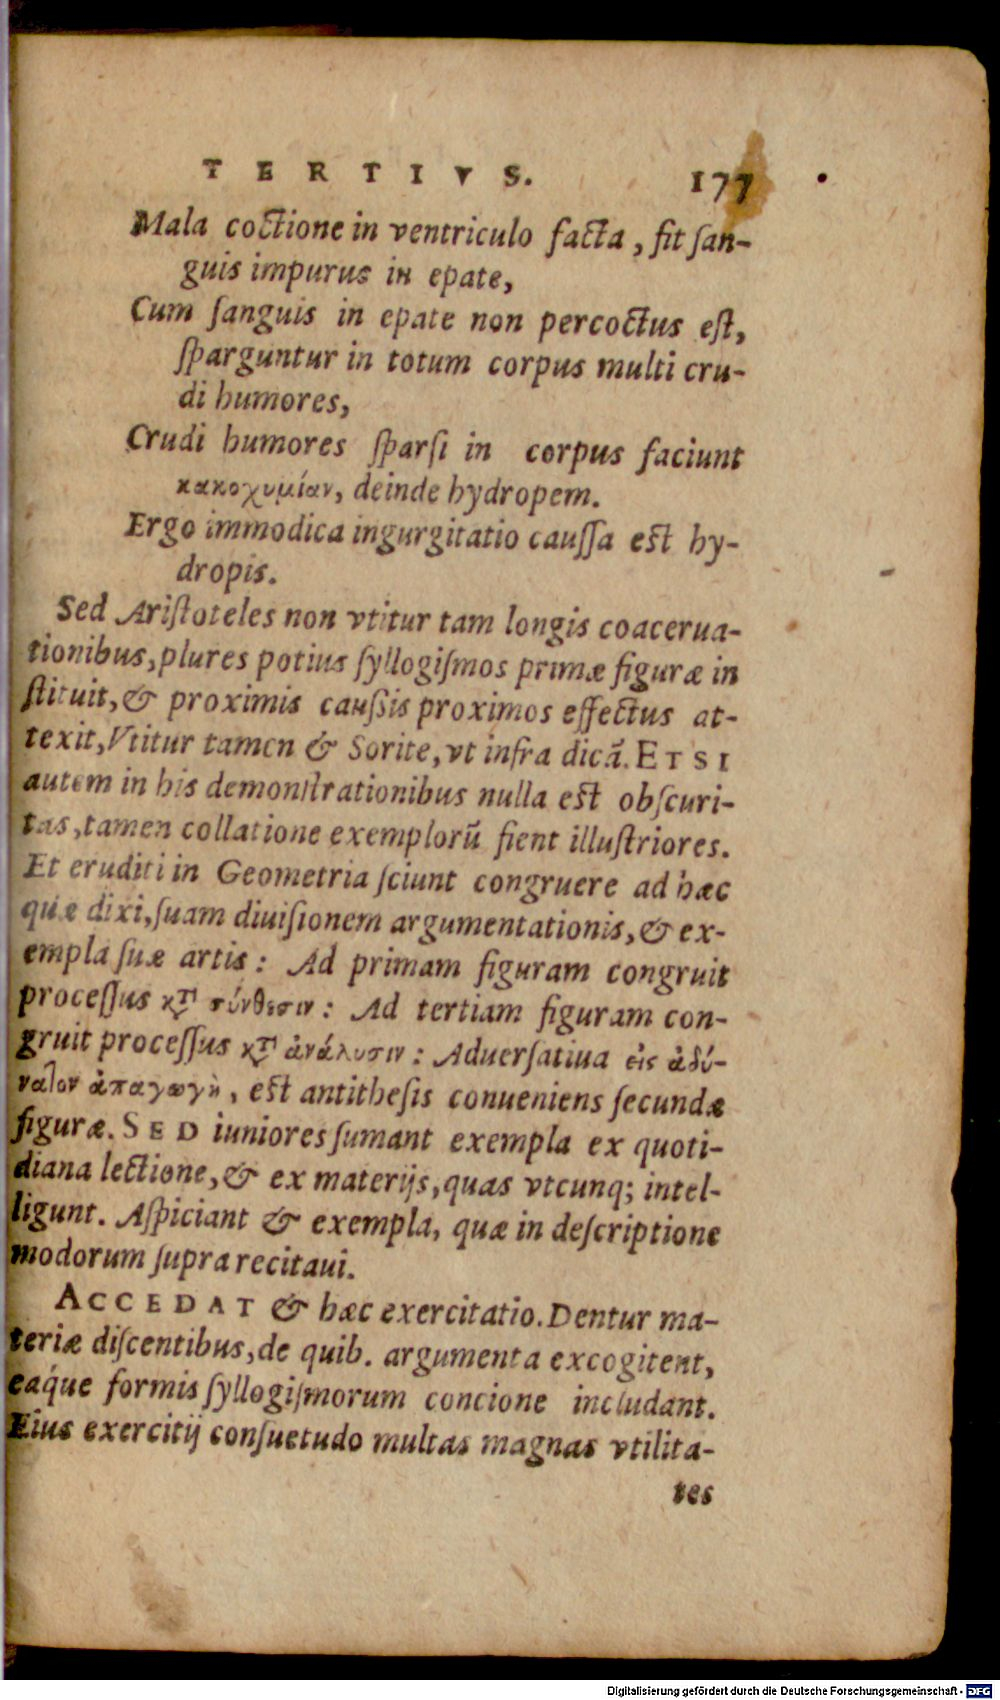 TERTIVS. 177
Mala coctione in ventriculo facta, fit ſan-
guis impurus in epate,
Cum ſanguis in epate non percoctus eſt,
ſparguntur in totum corpus multi cru-
di humores,
Crudi humores ſparſi in corpus faciunt
κακοχυμίαν, deinde hydropem.
Ergo immodica ingurgitatio cauſſa est hy-
dropis.
Sed Ariſtoteles non vtitur tam longis coacerua-
tionibus, plures potius ſyllogiſmos primæ figuræ in
ſtituit, & proximis cauſsis proximos effectus at-
texit, Vtitur tamen & Sorite, vt infra dicā. ETSI
autem in his demonstrationibus nulla est obſcuri-
tas, tamen collatione exemplorū fient illuſtriores.
Et eruditi in Geometria ſciunt congruere ad hæc
quæ dixi, ſuam diuiſionem argumentationis, & ex-
empla ſuæ artis: Ad primam figuram congruit
proceſſus κατὰ σύνθεσιν: Ad tertiam figuram con-
gruit proceſſus κατὰ ἀνάλυσιν: Aduerſatiua εἰς ἀδύ-
νατον ἀπαγωγὴ, est antitheſis conueniens ſecundæ
figuræ. SED iuniores ſumant exempla ex quoti-
diana lectione, & ex materijs, quas vtcunq; intel-
ligunt. Aſpiciant & exempla, quæ in deſcriptione
modorum ſupra recitaui.
ACCEDAT & hæc exercitatio. Dentur ma-
teriæ diſcentibus, de quib. argumenta excogitent,
eáque formis ſyllogiſmorum concione includant.
Eius exercitij conſuetudo multas magnas vtilita-
tes
Digitalisierung gefördert durch die Deutsche Forschungsgemeinschaft - DFG